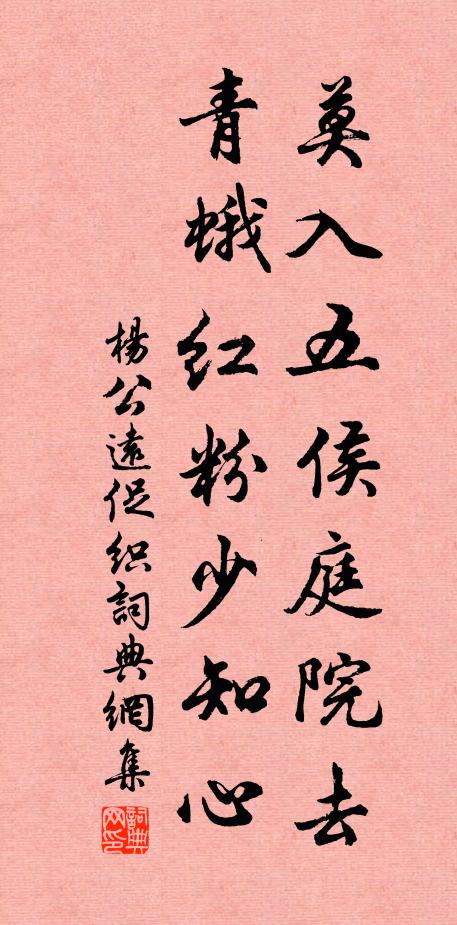 莫入五侯庭院去
青蛾红粉少知心
楊公遠促织詞典網集
詞典网印